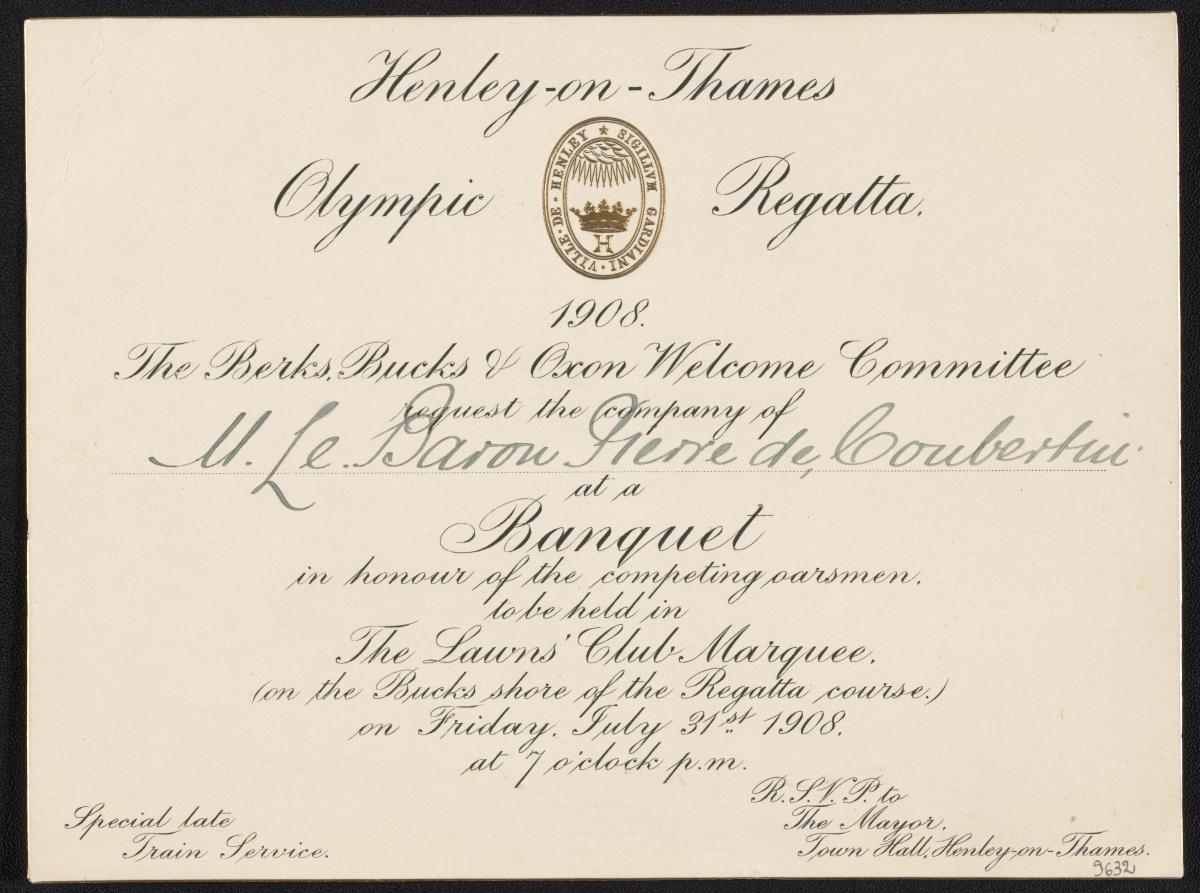 Henley-on-Thames
Olympic Regatta.
SIGILLVM GARDIANI · VILLE · DE · HENLEY
H
1908.
The Berks, Bucks & Oxon Welcome Committee
request the company of
M. Le. Baron Pierre de, Coubertin.
at a
Banquet
in honour of the competing oarsmen,
to be held in
The Lawns' Club Marquee,
(on the Bucks shore of the Regatta course.)
on Friday, July 31st 1908,
at 7 o'clock p.m.
Special late
Train Service.
R.S.V.P. to
The Mayor,
Town Hall, Henley-on-Thames.
9632